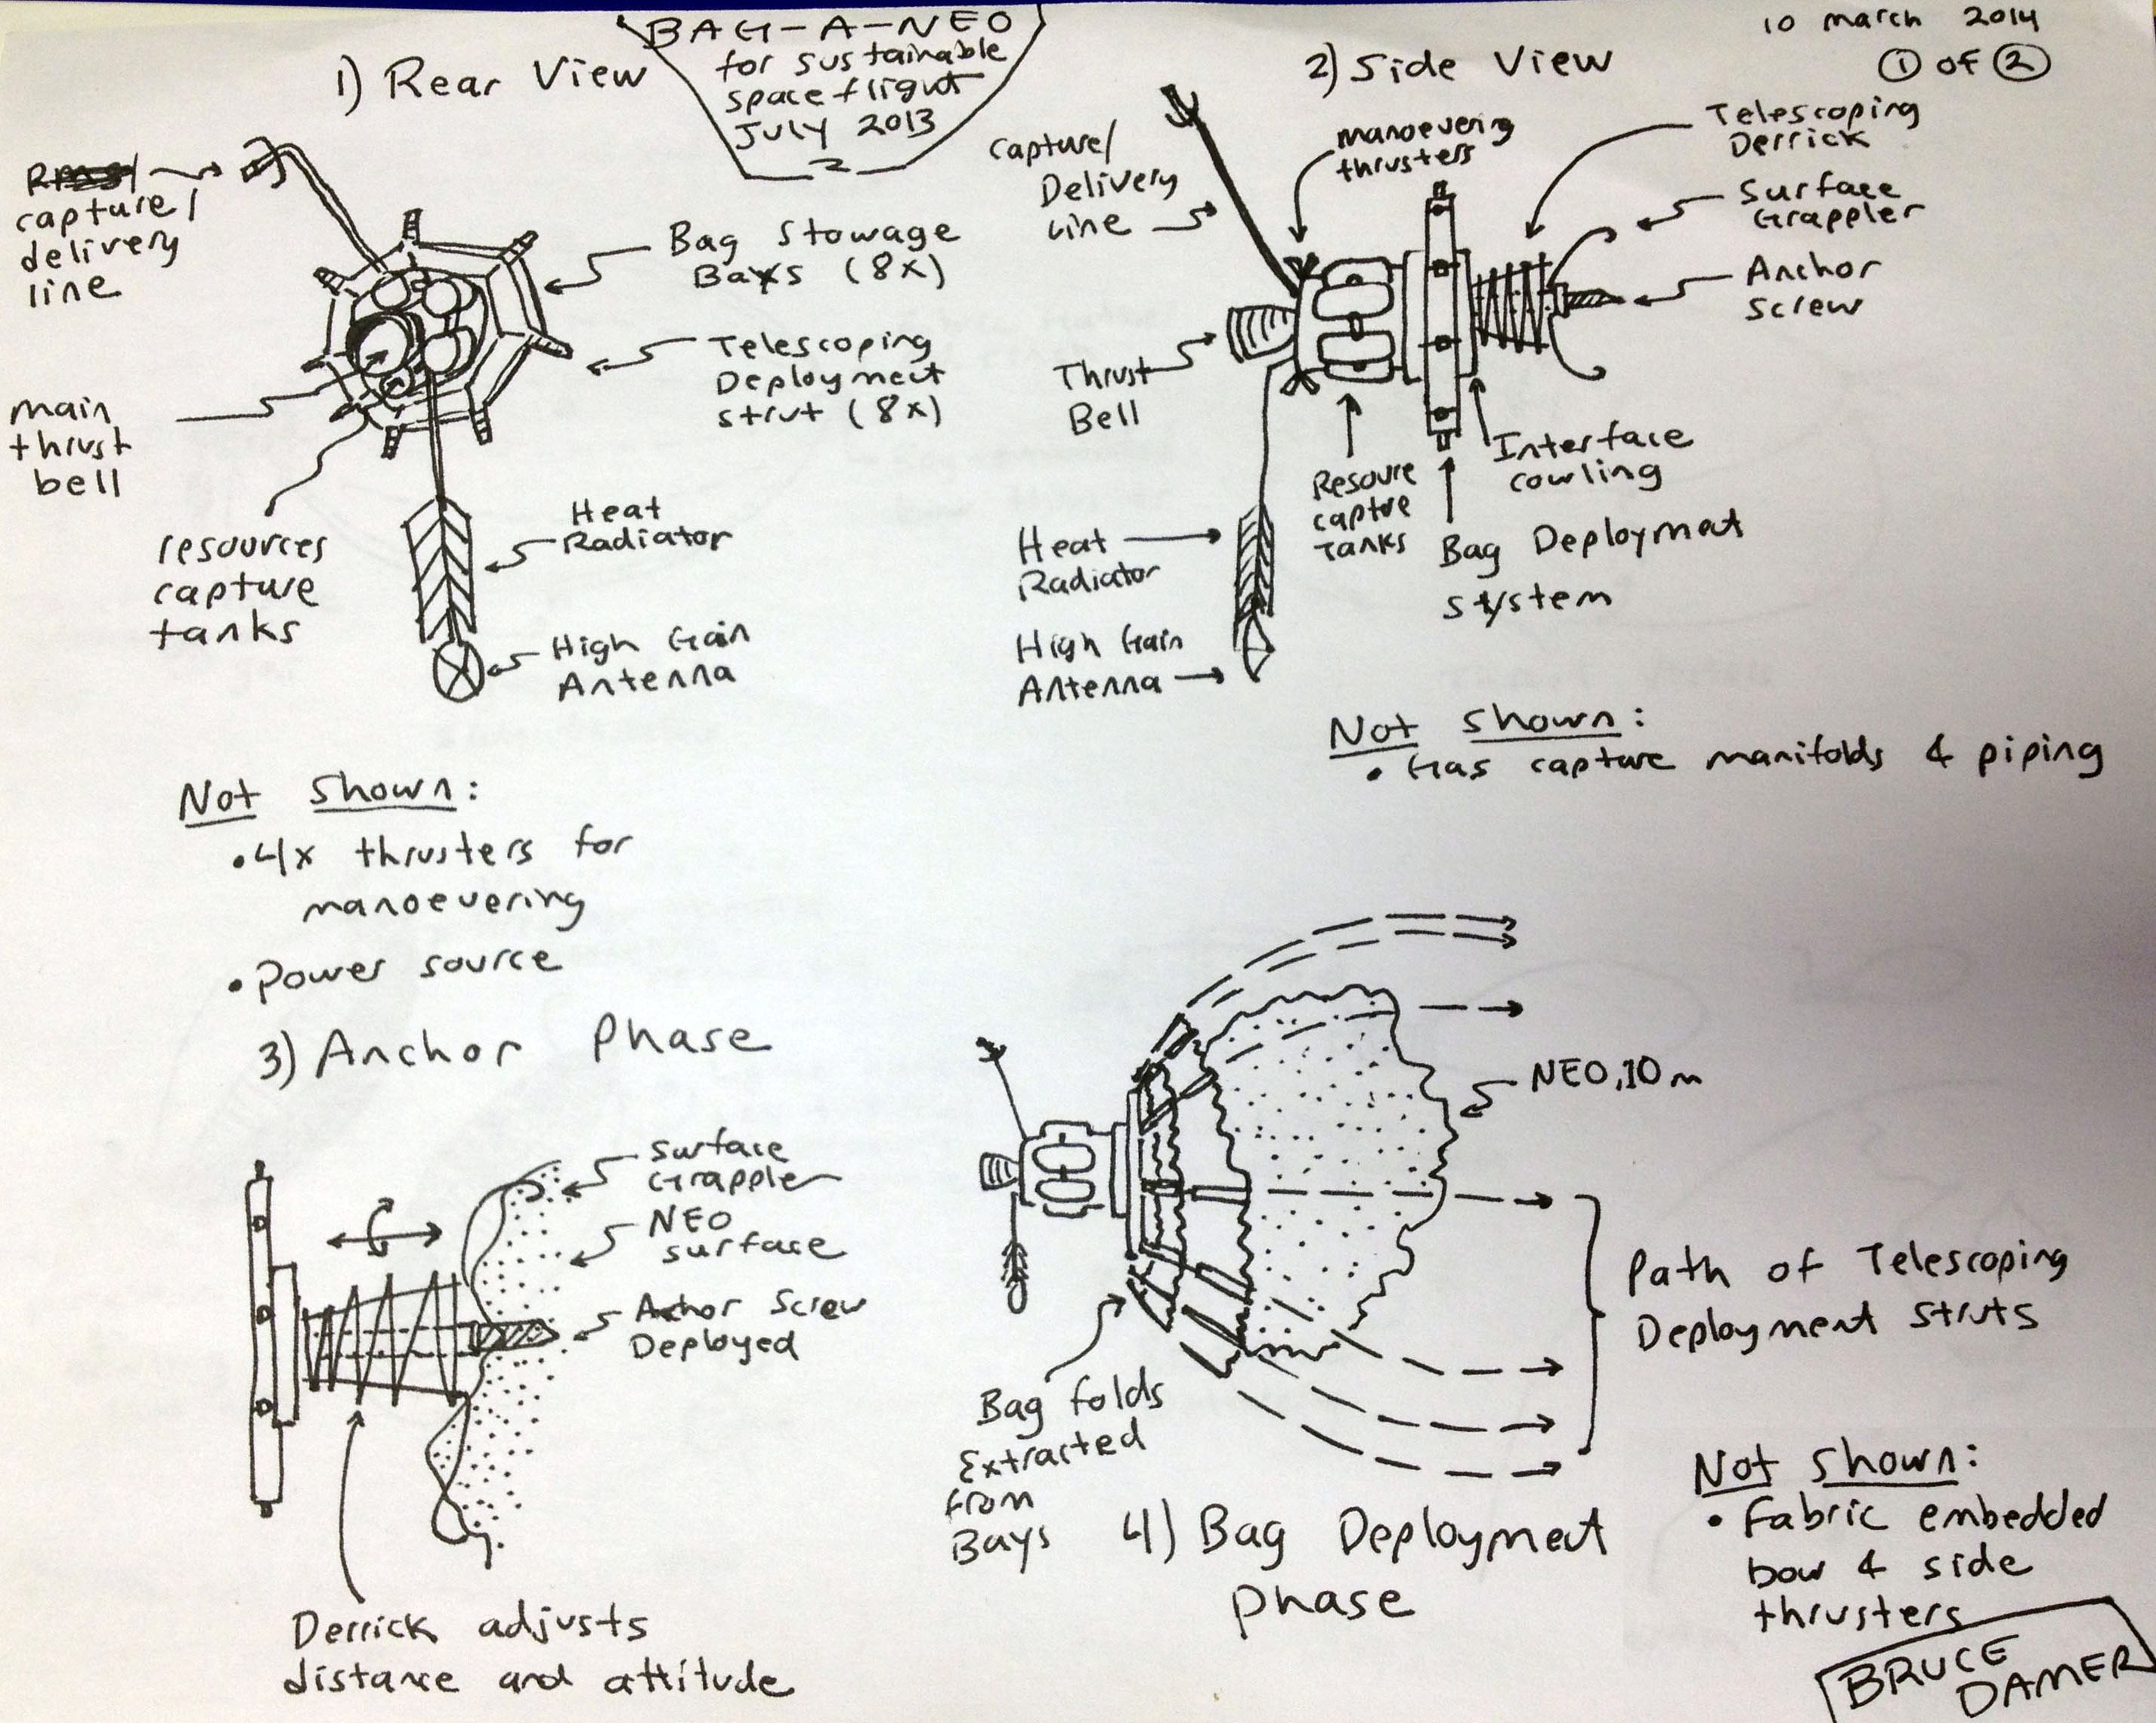 BAG-A-NEO
for sustainable
space flight
July 2013
10 march 2014
1 of 2
1) Rear View
capture/
delivery
line
Bag Stowage
Bays (8x)
Telescoping
Deployment
strut (8x)
main
thrust
bell
resources
capture
tanks
Heat
Radiator
High Gain
Antenna
Not shown:
• 4x thrusters for
manoevering
• Power source
2) Side View
capture/
Delivery
Line
manoevering
thrusters
Telescoping
Derrick
Surface
Grappler
Anchor
screw
Thrust
Bell
Resoure
captre
Tanks
Interface
cowling
Bag Deployment
system
Heat
Radiator
High Gain
Antenna
Not shown:
• Gas capture manifolds & piping
3) Anchor Phase
Surface
Grappler
NEO
surface
Achor Screw
Deployed
Derrick adjusts
distance and attitude
NEO, 10m
Path of Telescoping
Deployment struts
Bag folds
Extracted
from
Bays
4) Bag Deployment
Phase
Not shown:
• Fabric embedded
bow & side
thrusters
BRUCE
DAMER